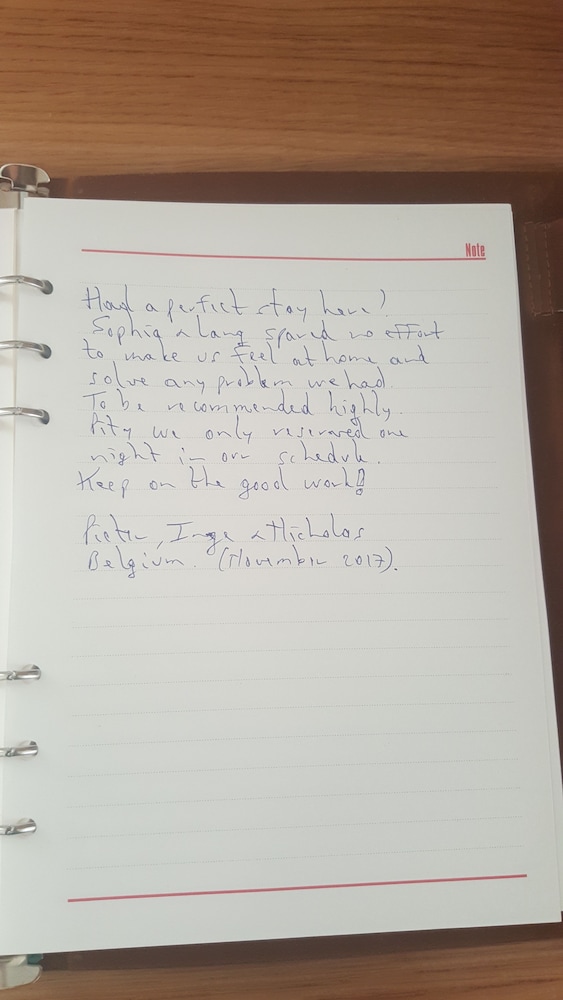 Note
Had a perfect stay here!
Sophia & Lang spared no effort
to make us feel at home and
solve any problem we had.
To be recommended highly.
Pity we only reserved one
night in our schedule.
Keep on the good work!
Pieter, Inge & Nicholas
Belgium. (November 2017).